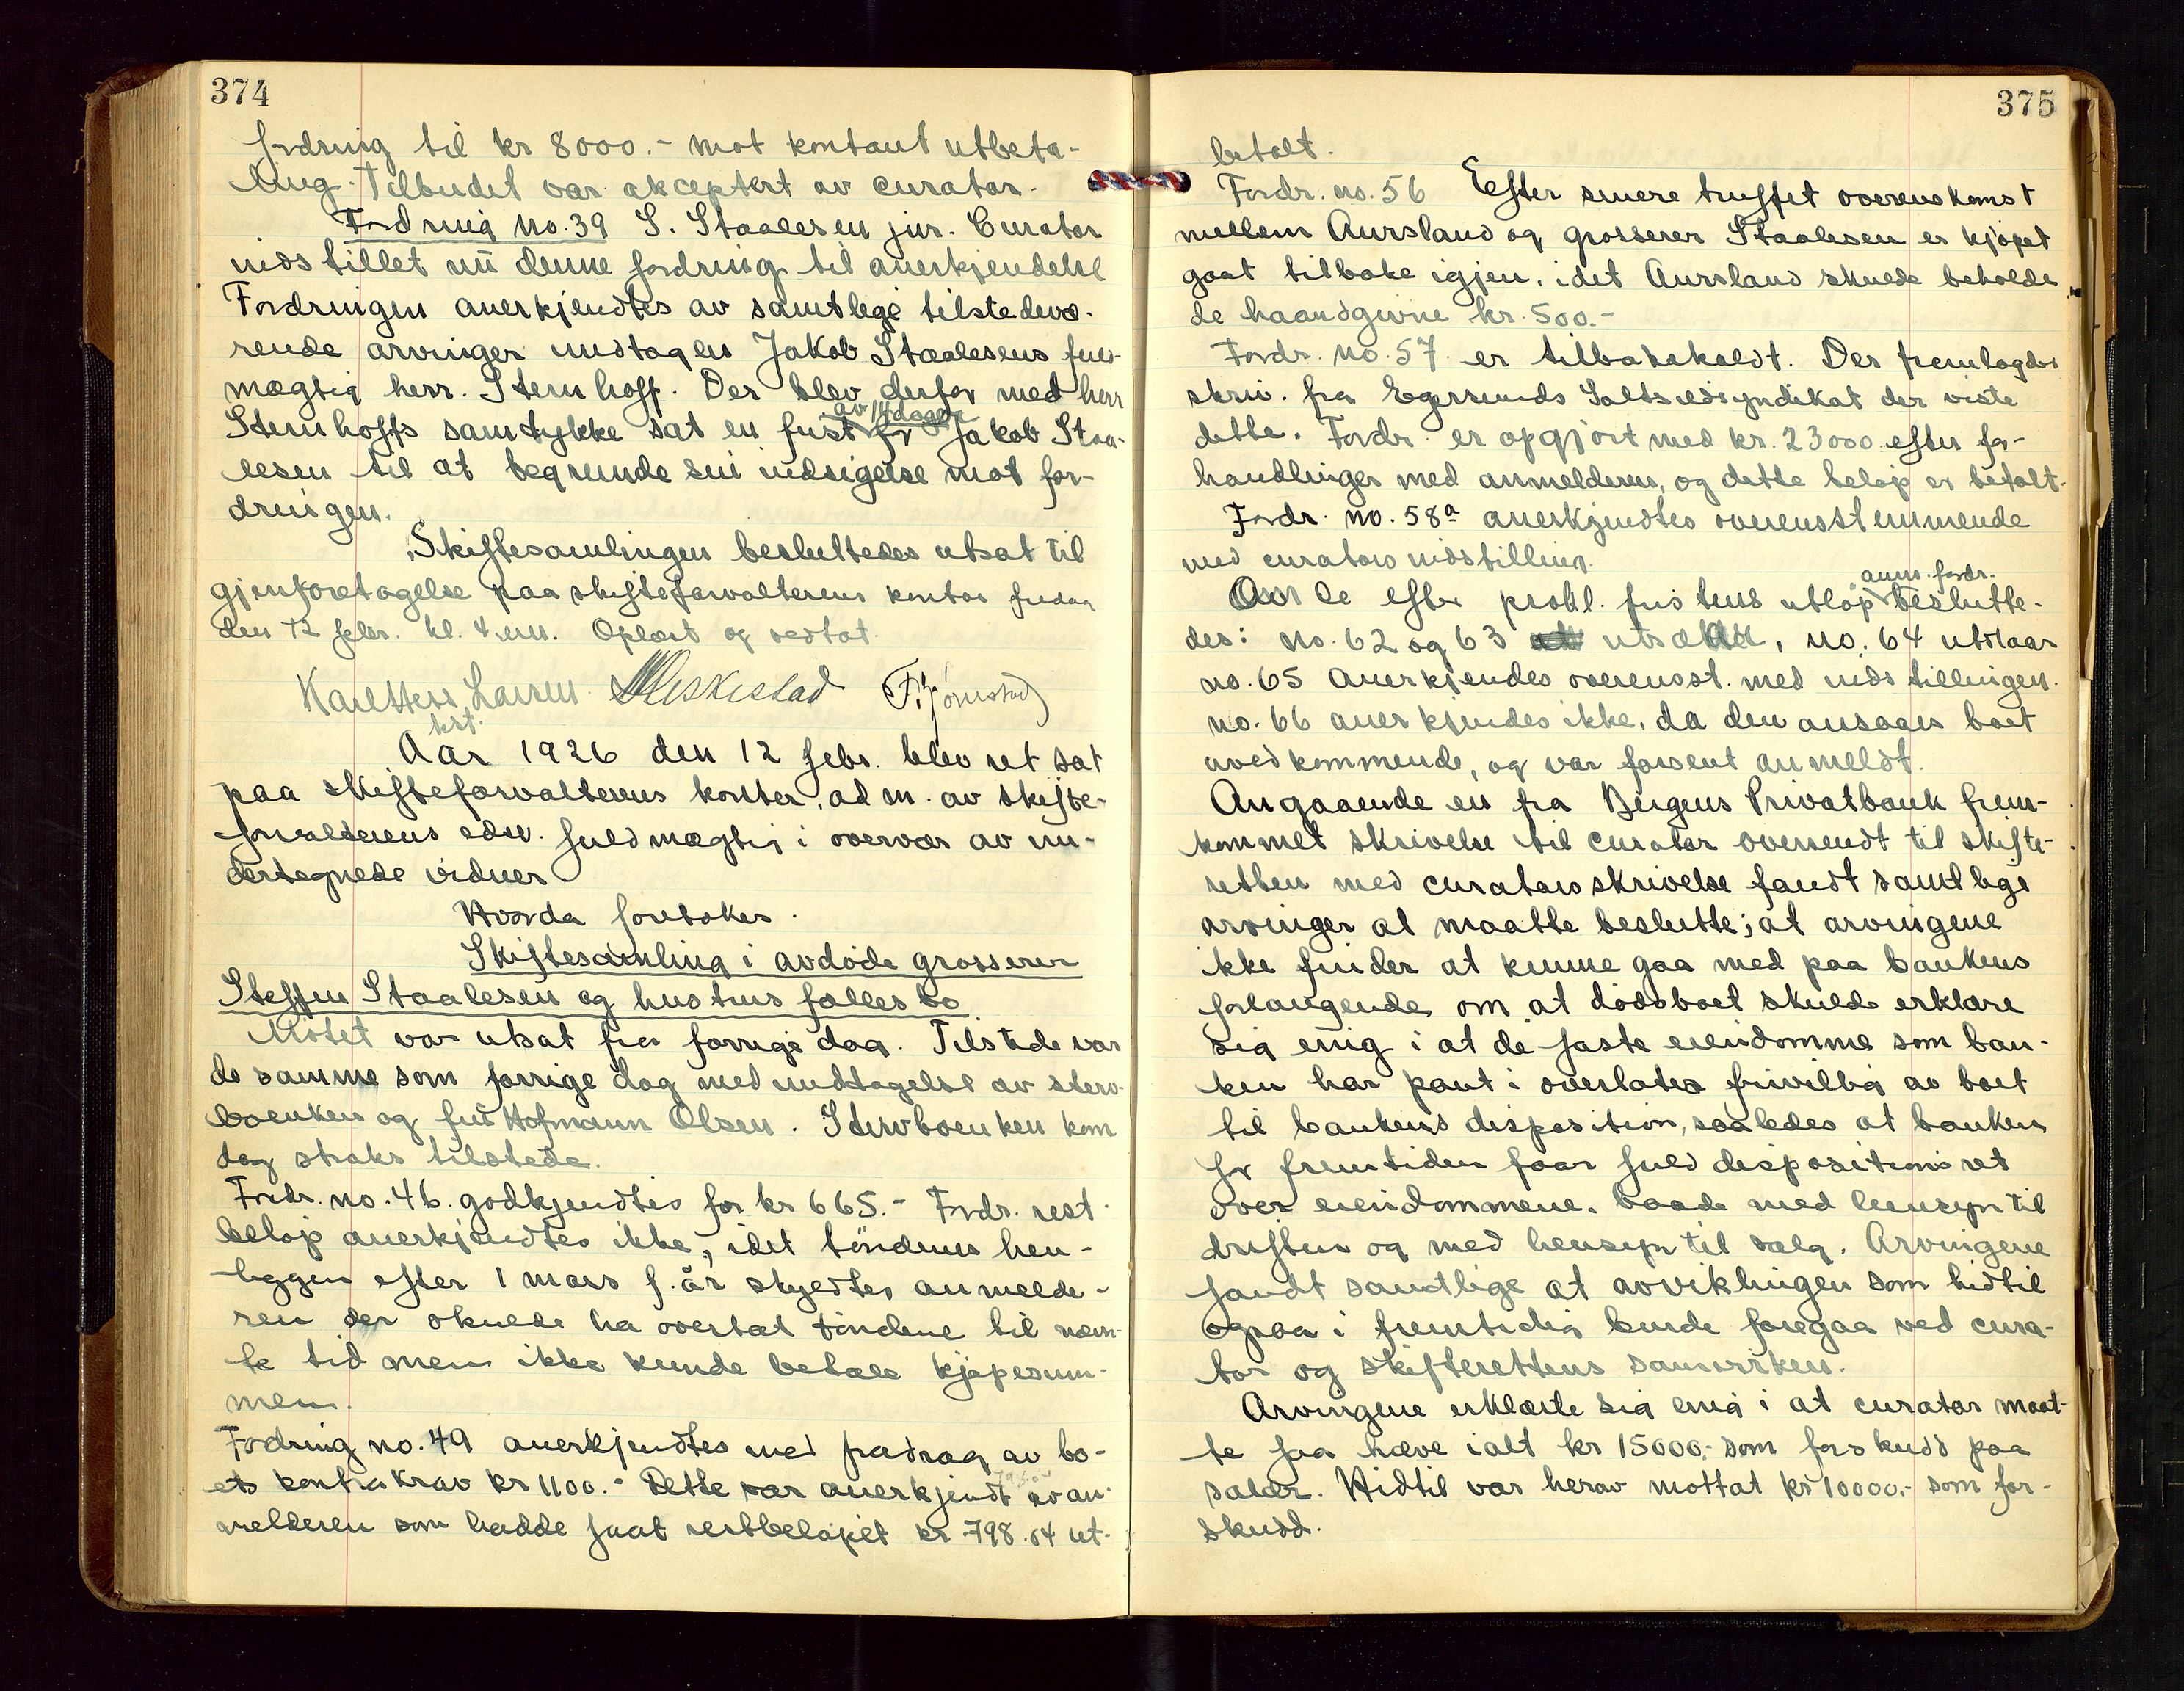 374
fordring til kr 8000.- mot kontant utbeta-
ling. Tilbudet var akceptert av curator.
Fordring no. 39 S. Staalesen jur. Curator
indstillet nu denne fordring til anerkjendelse
Fordringen anerkjendtes av samtlege tilstedevæ-
rende arvinger undtagen Jakob Staalesens fuld-
mægtig herr. Steinhoff. Der blev derfor med herr
av 14 dager
Steinhoffs samtykke sat en frist for Jakob Staa-
lesen til at begrunde sin indsigelse mot for-
dringen.
Skiftesamlingen besluttedes utsat til
gjenforetagelse paa skifteforvalterens kontor fredag
den 12 febr. kl. 4 em. Oplæst og vedtat.
Larsen. Meskestad
kst.
Aar 1926 den 12 febr. blev ret sat
paa skifteforvalterens kontor, adm. av skifte-
forvalterens edsv. fuldmægtig i overvær av un-
dertegnede vidner
Hvorda foretokes.
Skiftesamling i avdøde grosserer
Steffen Staalesen og hustrus fælles bo
Møtet var utsat fra forrige dag. Tilstede var
de samme som forrige dag med undtagelse av sterv-
boenken og fru Hofmann Olsen. Stervboenken kom
dog straks tilstede.
Fordr. no. 46. godkjendtes for kr 665.- Fordr. rest
beløp anerkjendtes ikke, idet tøndenes hen-
liggen efter 1 mars f. år skyldtes anmelde-
ren der skulde ha overtat tøndene til nævn-
te tid men ikke kunde betale kjøpesum-
men.
Fordring no. 49 anerkjendtes med fradrag av bo-
ets kontrakrav kr 1100.- Dette var anerkjendt av an-
melderen som hadde faat restbeløpet kr 798.64 ut-
375
betalt.
Fordr. no. 56 Efter senere truffet overenskomst
mellem Aursland og grosserer Staalesen er kjøpet
gaat tilbake igjen, idet Aursland skulde beholde
de haandgivne kr. 500.-
Fordr. no. 57 er tilbakekaldt. Der fremlagdes
skriv. fra Egersunds Saltsildsyndikat der viste
dette. Fordr. er opgjort med kr. 23000 efter for-
handlinger med anmelderen, og dette beløp er betalt.
Fordr. no. 58a anerkjendtes overensstemmende
med curators indstilling.
anm. fordr.
Av de efter prokl. fristens utløp beslutte-
des: no. 62 og 63 utsættes, no. 64 utstaar
no. 65 anerkjendes overensst. med indstillingen.
no. 66 anerkjendes ikke, da den ansaaes boet
uvedkommende, og var forsent anmeldt.
Angaaende en fra Bergens Privatbank frem-
kommet skrivelse til curator oversendt til skifte-
retten med curators skrivelse fandt samtlige
arvinger at maatte beslutte; at arvingene
ikke finder at kunne gaa med paa bankens
forlangende om at dødsboet skulde erklære
sig enig i at de faste eiendomme som ban-
ken har pant i overlates frivillig av boet
til bankens disposition, saaledes at banken
for fremtiden faar fuld dispositionsret
over eiendommene, baade med hensyn til
driften og med hensyn til salg. Arvingene
fandt samtlige at avviklingen som hidtil
ogsaa i fremtiden burde foregaa ved cura-
tor og skifterettens samvirken.
Arvingene erklærte sig enig i at curator maat-
te faa hæve ialt kr 15000.- som forskudd paa
salær. Hidtil var herav mottat kr 10000.- som for-
skudd.